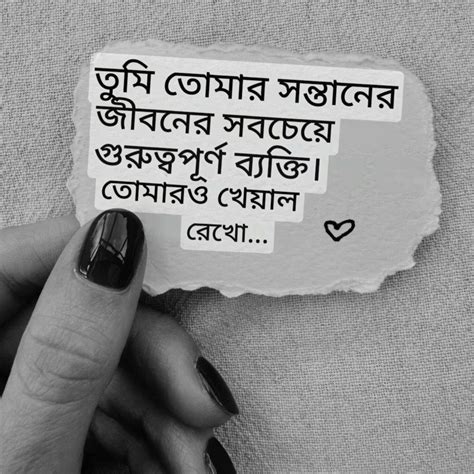 তুমি তোমার সন্তানের
জীবনের সবচেয়ে
গুরুত্বপূর্ণ ব্যক্তি।
তোমারও খেয়াল
রেখো...